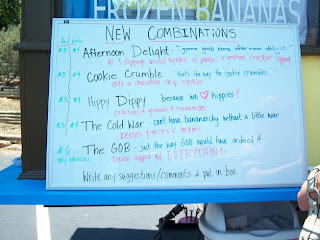 FROZEN BANANAS
NEW COMBINATIONS
1/2 whole
$3 $4 Afternoon Delight - "gonna grab some afternoon delight.."
all 3 dippings swirled together w/ peanut & graham cracker topping
$3 $4 Cookie Crumble - that's the way the cookie crumbles.
oreo & chocolate chip cookies
$3 $4 Hippy Dippy because we ♥ hippies?
& cinnamon
$3 $4 The Cold War - can't have bananarchy without a little war
reeses pieces & m&m's
$6 The GOB - just the way GOB would have ordered it
only whole
Double dipped w/ EVERYTHING
Write any suggestions/comments & put in box